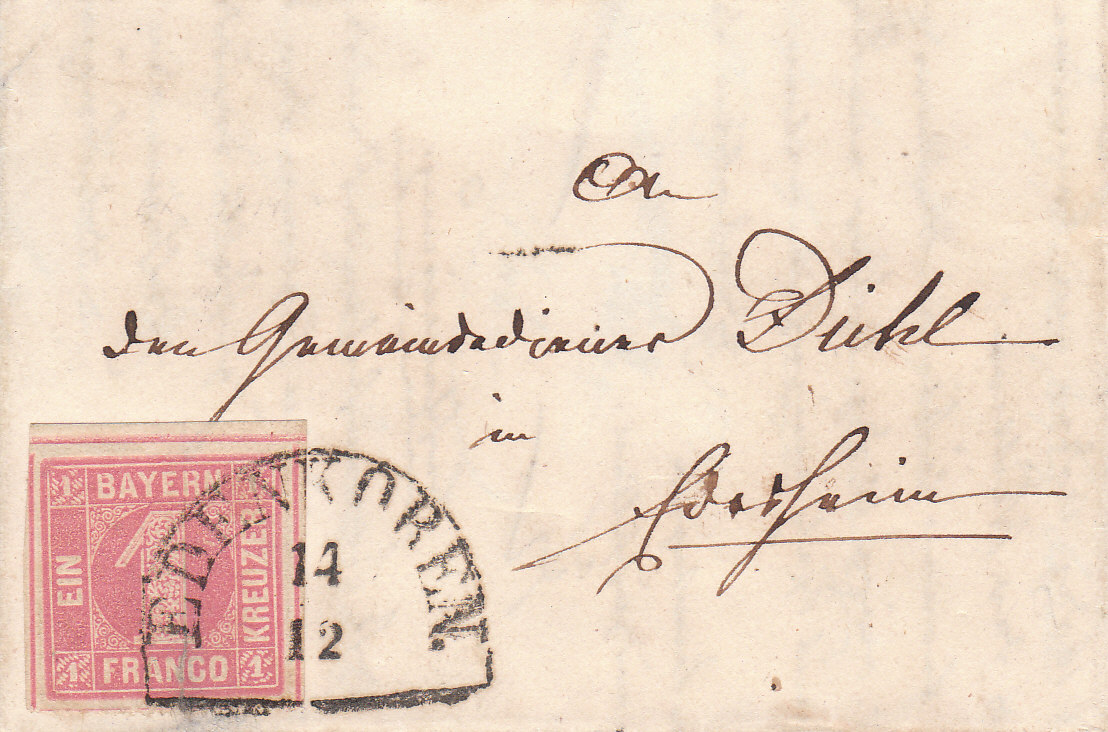 An
den Gemeindediener Diehl
in
Edesheim
1 BAYERN 1
EIN
KREUZER
1 FRANCO 1
EDENKOBEN.
14
12